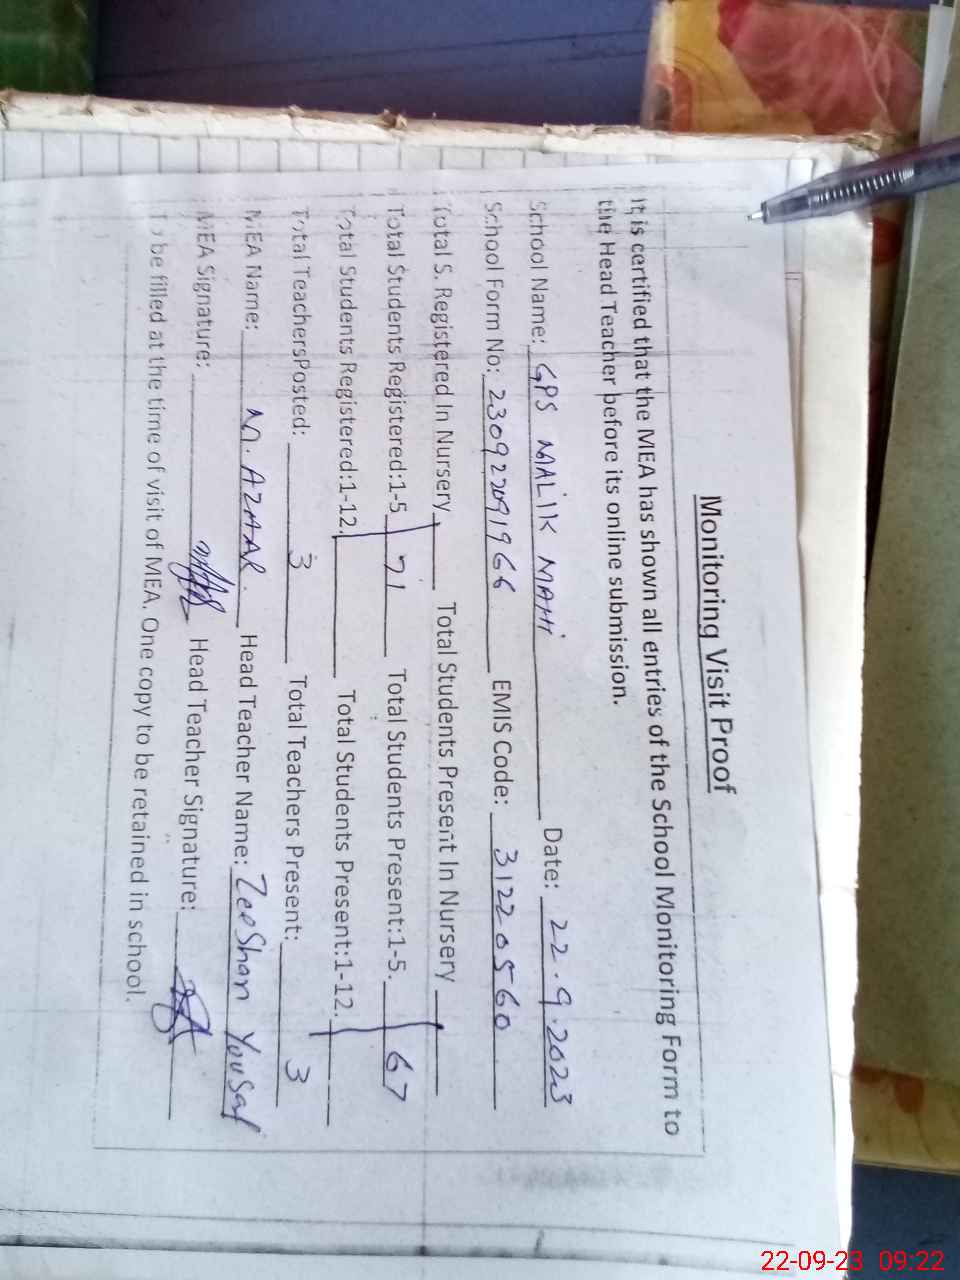 Monitoring Visit Proof
It is certified that the MEA has shown all entries of the School Monitoring Form to
the Head Teacher before its online submission.
School Name: GPS MALIK MAHI Date: 22.9.2023
School Form No: 230922091966 EMIS Code: 31220560
Total S. Registered In Nursery Total Students Present In Nursery
Total Students Registered:1-5 71 Total Students Present:1-5. 67
Total Students Registered:1-12. Total Students Present:1-12.
Total TeachersPosted: 3 Total Teachers Present: 3
MEA Name: M. AZHAR Head Teacher Name: ZeeShan YouSaf
MEA Signature: Head Teacher Signature:
To be filled at the time of visit of MEA. One copy to be retained in school.
22-09-23 09:22